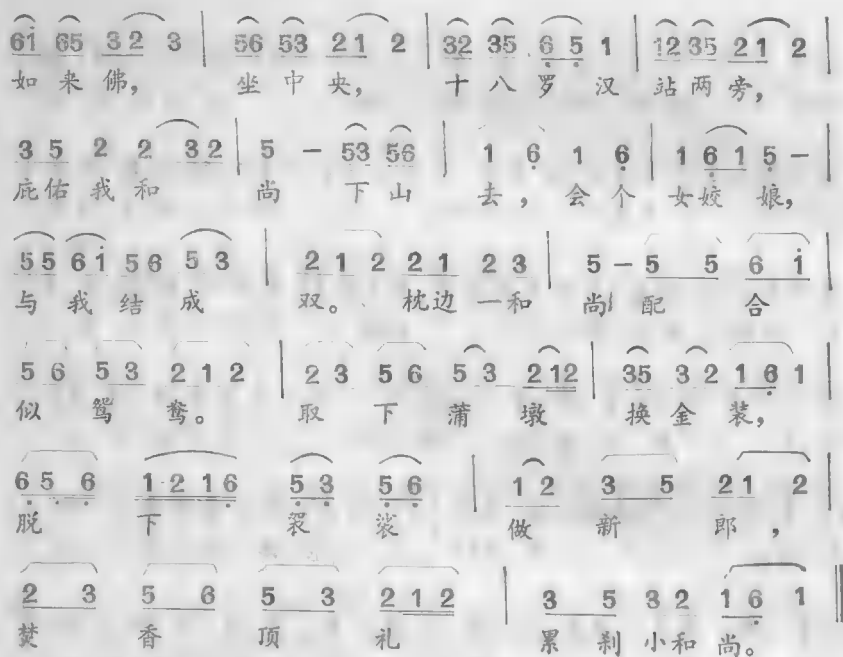 6i 65 3 2 3 | 56 53 21 2 | 32 35 6 5 1 | 12 35 21 2 |
如来佛, 坐中央, 十八罗汉 站两旁,
3 5 2 2 32 | 5 - 53 56 | 1 6 1 6 | 1 6 1 5 - |
庇佑我和 尚 下山 去, 会个 女姣娘,
55 6i 56 5 3 | 2 1 2 21 2 3 | 5 - 5 5 6 i |
与我结成 双。枕边一和 尚 配合
5 6 5 3 2 1 2 | 2 3 5 6 5 3 2 12 | 35 3 2 1 6 1 |
似鸳鸯。 取下蒲墩 换金装,
6 5 6 1 2 1 6 5 3 5 6 | 1 2 3 5 21 2 |
脱下袈裟 做新郎,
2 3 5 6 5 3 2 1 2 | 3 5 3 2 1 6 1
焚香顶礼 累刹小和尚。